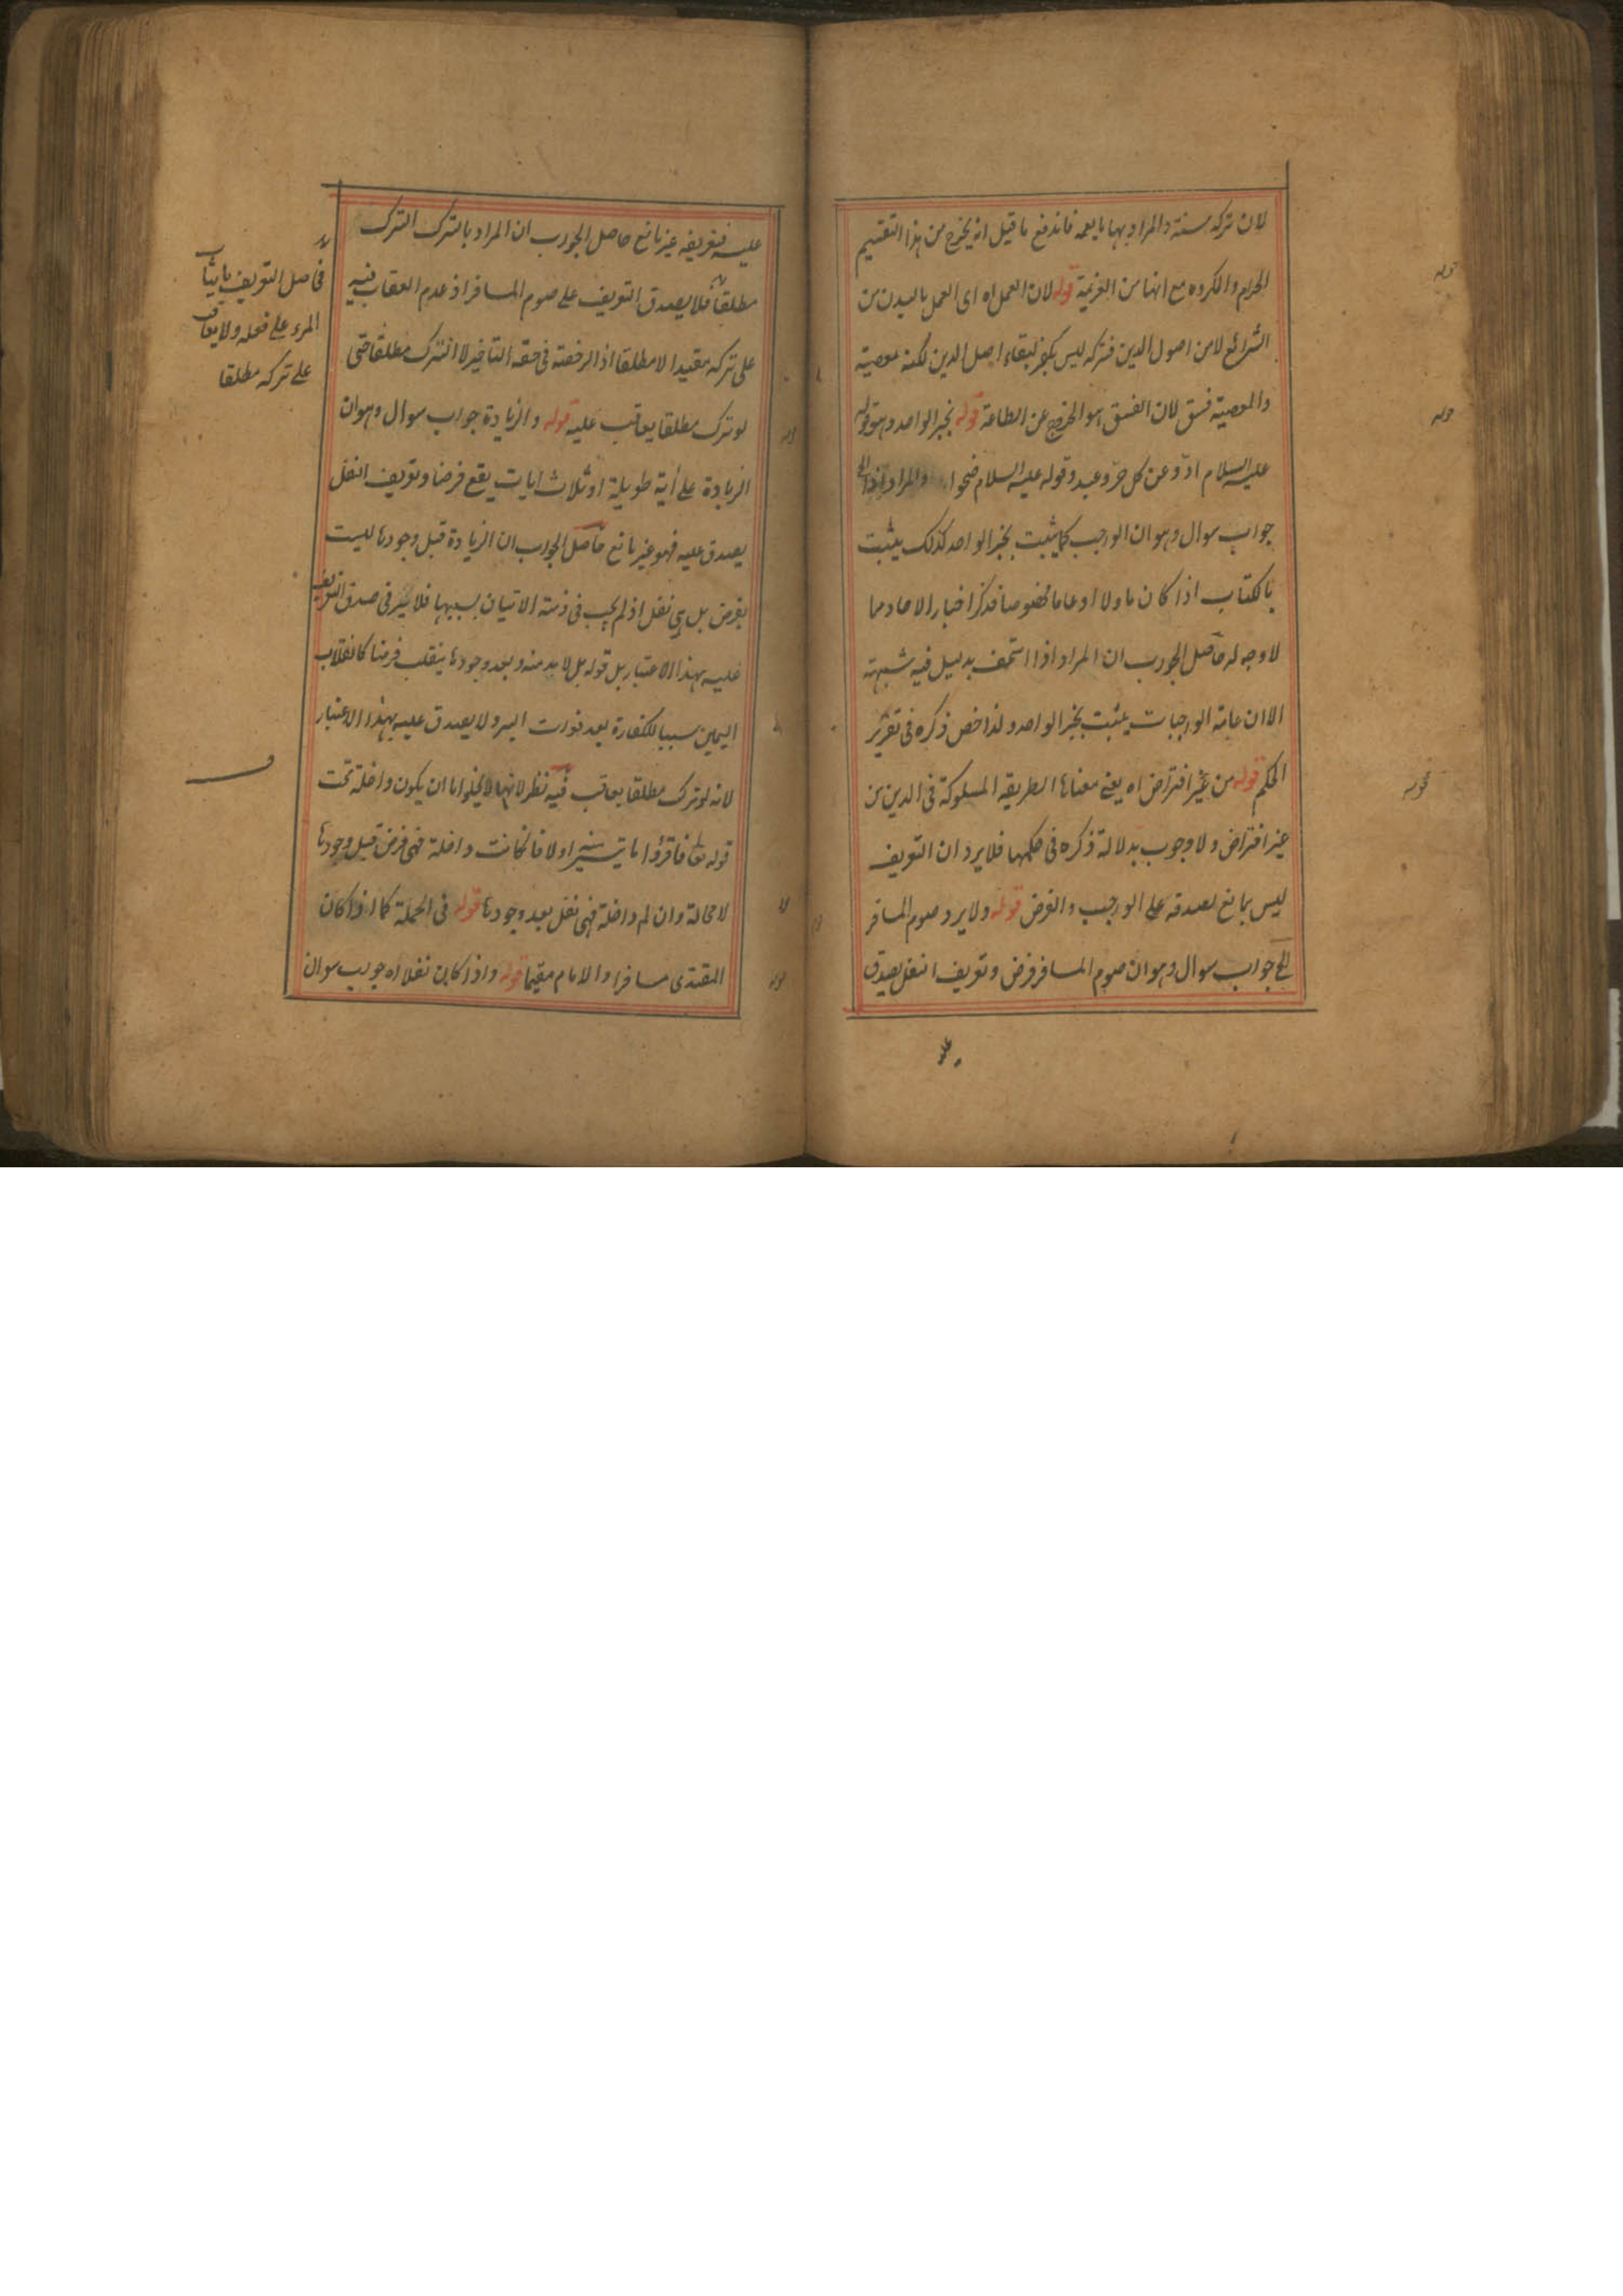 لان تركه سنة والمراد بها ما يعمه فاندفع ما قيل انه يخرج من هذا التقسيم
الحرام والمكروه مع انهما من العزيمة قوله لان العمل اه اى العمل بالبدن من
الشرائع لا من اصول الدين فتركه ليس بكفر لبقاء اصل الدين لكنه معصية
والمعصية فسق لان الفسق هو الخروج عن الطاعة قوله بخبر الواحد وهو قوله
عليه السلام ادّوا عن كل حرّ وعبد وقوله عليه السلام ضحوا والمراد اذا الخ
جواب سوال وهو ان الواجب كما يثبت بخبر الواحد كذلك يثبت
بالكتاب اذا كان ماولا او عاما مخصوصا فذكر اخبار الاحاد مما
لا وجه له حاصل الجواب ان المراد اذا استخف بدليل فيه شبهة
الا ان عامة الواجبات يثبت بخبر الواحد ولذا خص ذكره فى تقرير
الحكم قوله من غير افتراض اه يعنى معناها الطريقة المسلوكة فى الدين من
غير افتراض ولا وجوب بدلالة ذكره فى حكمها فلا يرد ان التعريف
ليس بمانع لصدقه على الواجب والفرض قوله ولا يرد صوم المسافر
الخ جواب سوال وهو ان صوم المسافر فرض وتعريف النفل يصدق
عليه
عليه فتعريفه غير مانع حاصل الجواب ان المراد بالترك الترك
مطلقا فلا يصدق التعريف على صوم المسافر اذ عدم العقاب فيه
على تركه مقيدا لا مطلقا اذ الرخصة فى حقه التاخير لا الترك مطلقا حتى
لو ترك مطلقا يعاقب عليه قوله والزيادة جواب سوال وهو ان
الزيادة على أية طويلة او ثلاث ايات يقع فرضا وتعريف النفل
يصدق عليه فهو غير مانع حاصل الجواب ان الزيادة قبل وجودها ليست
بفرض بل هى نفل اذ لم يجب فى ذمته الاتيان بسببها فلا ضير فى صدق التعريف
عليه بهذا الاعتبار بل قوله بل لا بد منه وبعد وجودها ينقلب فرضا كانقلاب
اليمين سببا للكفارة بعد فوات البر ولا يصدق عليه بهذا الاعتبار
لانه لو ترك مطلقا يعاقب فيه نظر لانها لا يخلوا اما ان يكون داخلة تحت
قوله تعا فاقرؤا ما تيسر اولا فان كانت داخلة فهى فرض قبل وجودها
لا محالة وان لم داخلة فهى نفل بعد وجودها قوله فى الجملة كما اذا كان
المقتدى مسافرا والامام مقيما قوله واذا كان نفلا اه جواب سوال
فحاصل التعريف ما يثاب
المرء على فعله ولا يعاقب
على تركه مطلقا